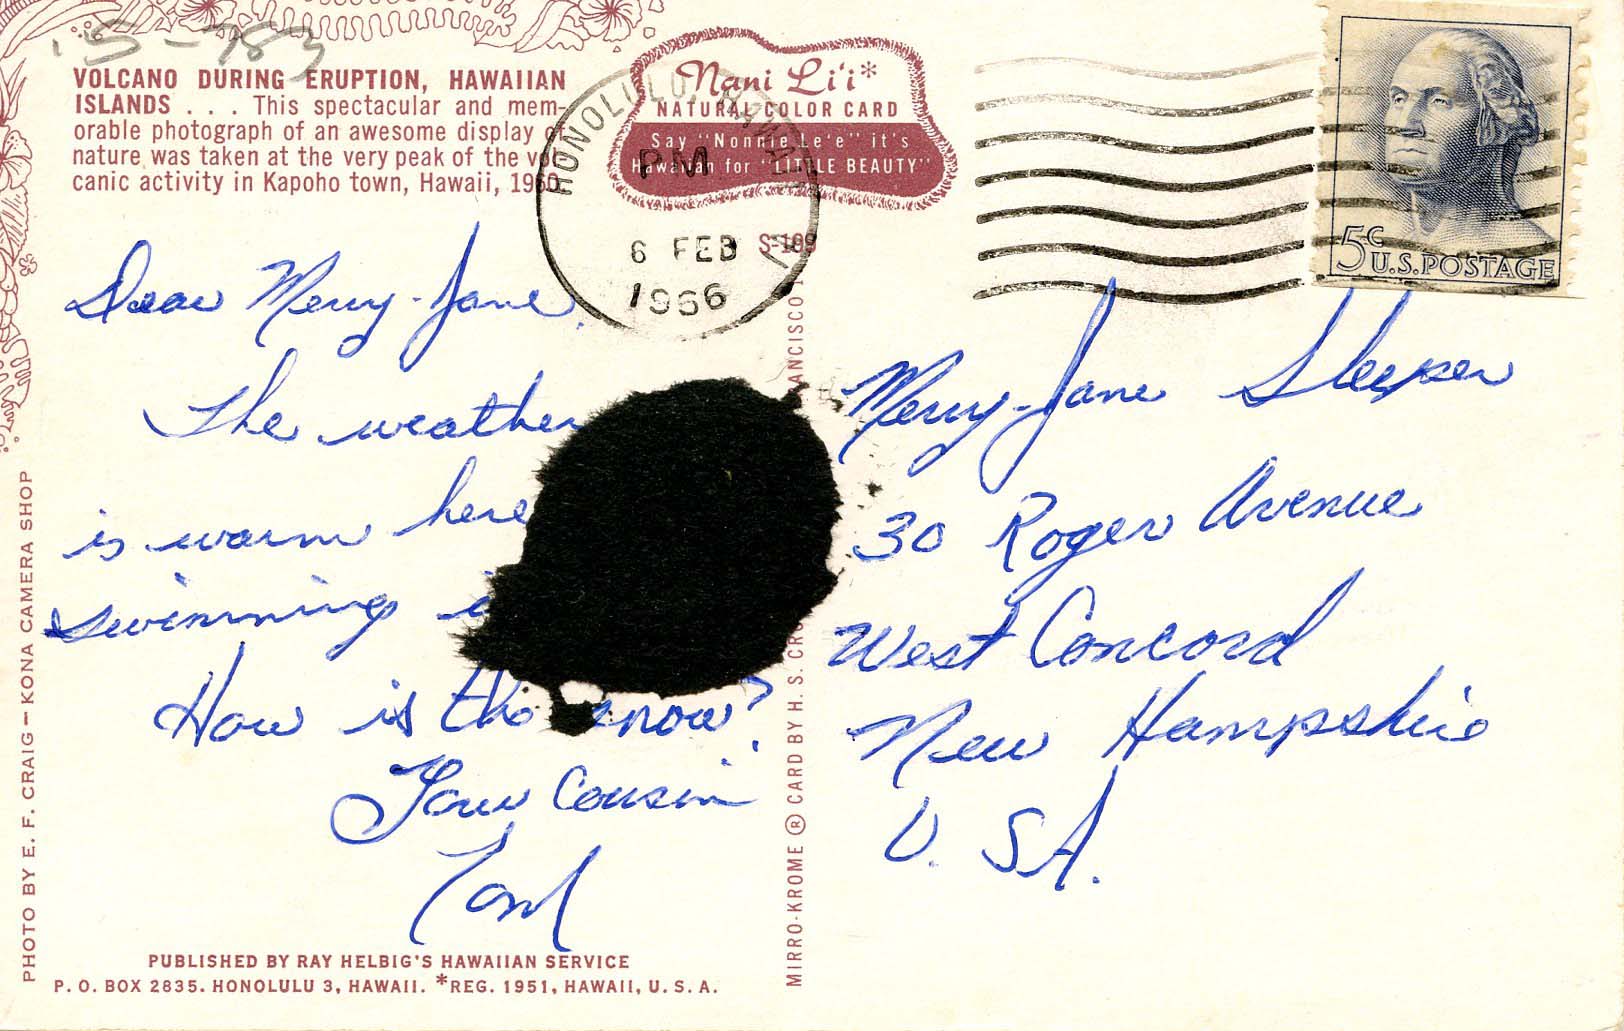 VOLCANO DURING ERUPTION, HAWAIIAN
ISLANDS . . . This spectacular and mem-
orable photograph of an awesome display of
nature was taken at the very peak of the vol-
canic activity in Kapoho town, Hawaii, 1960.
Nani Li'i*
NATURAL COLOR CARD
Say "Nonnie Le'e" it's
Hawaiian for "LITTLE BEAUTY"
S-109
HONOLULU, HAWAII
PM
6 FEB
1966
5c
U.S. POSTAGE
Dear Merry-Jane,
The weather
is warm here
swimming
How is the snow?
Your Cousin
Tom
Merry-Jane Sleeper
30 Roger Avenue
West Concord
New Hampshire
U. S A.
PHOTO BY E. F. CRAIG – KONA CAMERA SHOP
MIRRO-KROME ® CARD BY H. S. CRO
ANCISCO
PUBLISHED BY RAY HELBIG'S HAWAIIAN SERVICE
P. O. BOX 2835. HONOLULU 3, HAWAII. *REG. 1951, HAWAII, U. S. A.